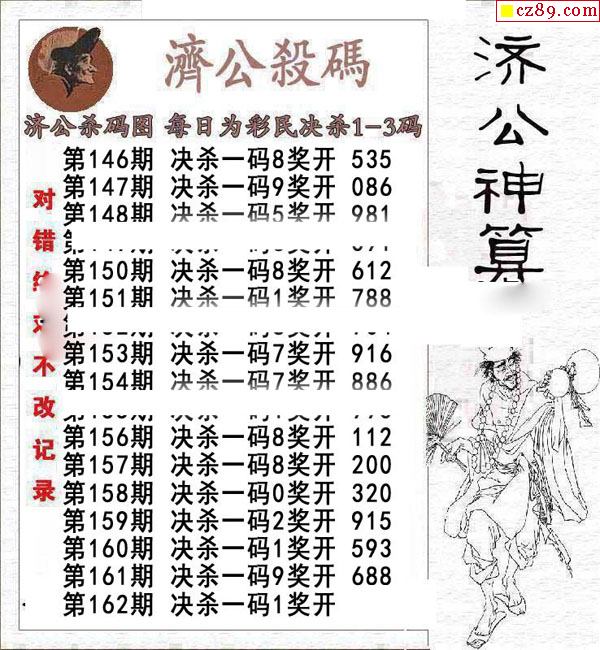 cz89.com
濟公殺碼
济公杀码图 每日为彩民决杀1-3码
第146期 决杀一码8奖开 535
第147期 决杀一码9奖开 086
第148期 决杀一码5奖开 981
第150期 决杀一码8奖开 612
第151期 决杀一码1奖开 788
第153期 决杀一码7奖开 916
第154期 决杀一码7奖开 886
第156期 决杀一码8奖开 112
第157期 决杀一码8奖开 200
第158期 决杀一码0奖开 320
第159期 决杀一码2奖开 915
第160期 决杀一码1奖开 593
第161期 决杀一码9奖开 688
第162期 决杀一码1奖开
对错 不改记录
济公神算